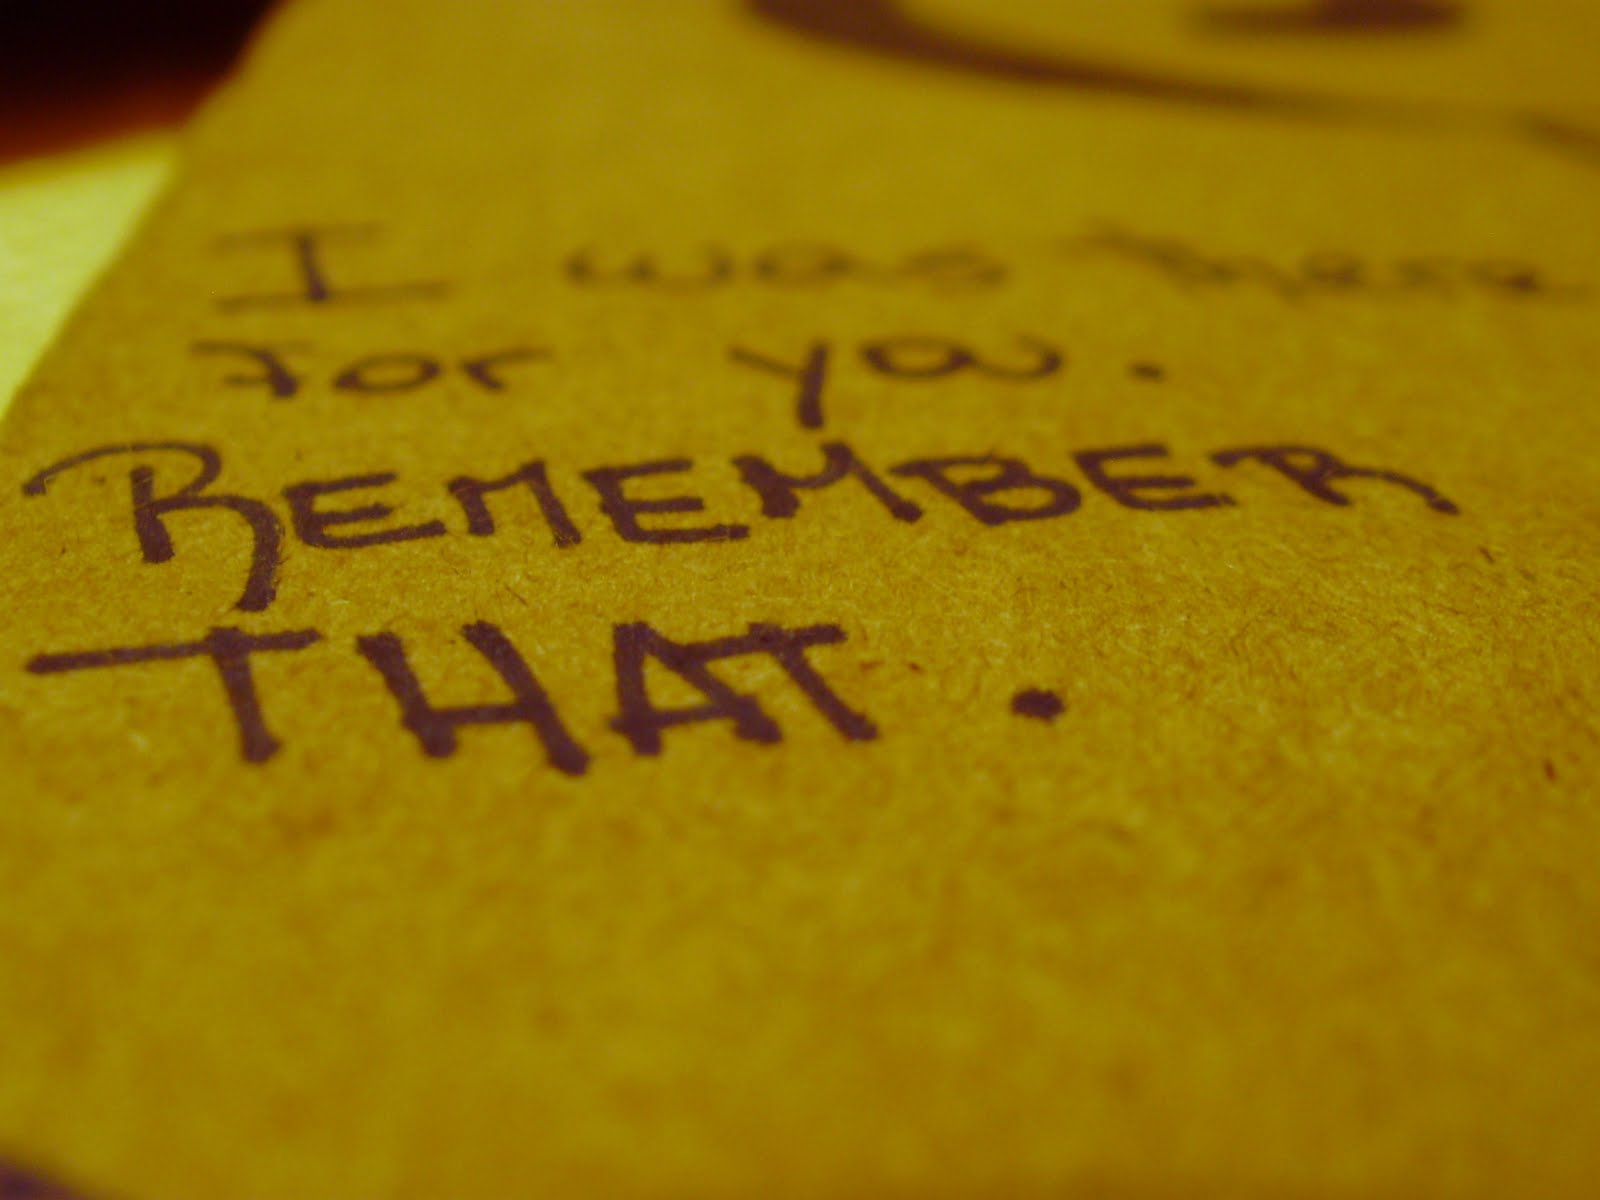 I was there
for you.
REMEMBER
THAT.